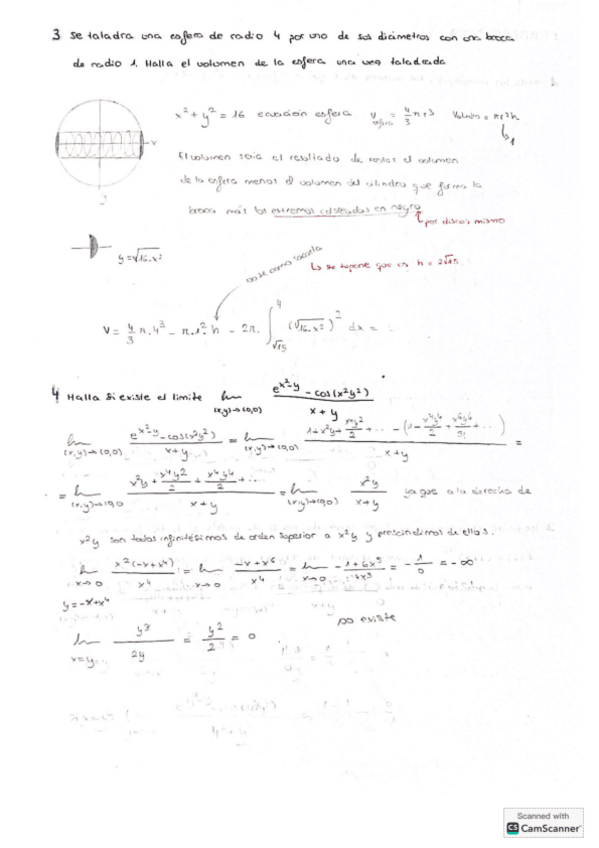 3 Se taladra una esfera de radio 4 por uno de sus diámetros con una broca
de radio 1. Halla el volumen de la esfera una vez taladrada
x² + y² = 16 ecuación esfera V esfera = 4/3 π r³ Vcilindro = π r² h
↳ 1
El volumen sería el resultado de restar el volumen
de la esfera menos el volumen del cilindro que forma la
broca más los extremos coloreados en negro
↑ por discos mismo
y = √16-x²
no sé como sacarla
↳ se supone que es h = 2√15
V = 4/3 π · 4³ - π · 1² · h - 2π · ∫_√15^4 (√16-x²)² dx =
4 Halla si existe el límite lim (x,y)→(0,0) e^x²y - cos(x²y²) / x + y
lim (x,y)→(0,0) e^x²y - cos(x²y²) / x+y = lim (x,y)→(0,0) 1 + x²y + x⁴y²/2 + ... - (1 - x⁴y⁴/2 + ...) / x+y =
= lim (x,y)→(0,0) x²y + x⁴y²/2 + x⁴y⁴/2 + ... / x+y = lim (x,y)→(0,0) x²y / x+y ya que a la derecha de
x²y son todos infinitésimos de orden superior a x²y y prescindimos de ellos.
lim x→0 x²(-x+x⁴) / x⁴ = lim x→0 -x+x⁴ / x⁴ = lim x→0 = -1/0 = -∞
y=-x+x⁴
no existe
lim x=y y³ / 2y = y²/2 = 0
Scanned with
CS CamScanner